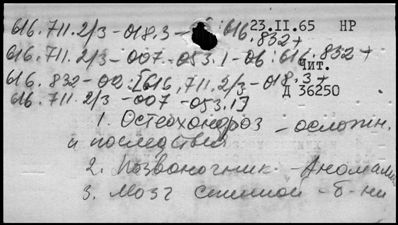 616.711.2/3-018.3- :616.
23.II.65 НР
832+
616.711.2/3-007-053.1-06:616.832+
Чит.
616.832-02:[616.711.2/3-018.3+
Д 36250
616.711.2/3-007-053.1]
1. Остеохондроз - осложн.
и последствия
2. Позвоночник - Аномалии
3. Мозг спинной - б-ни